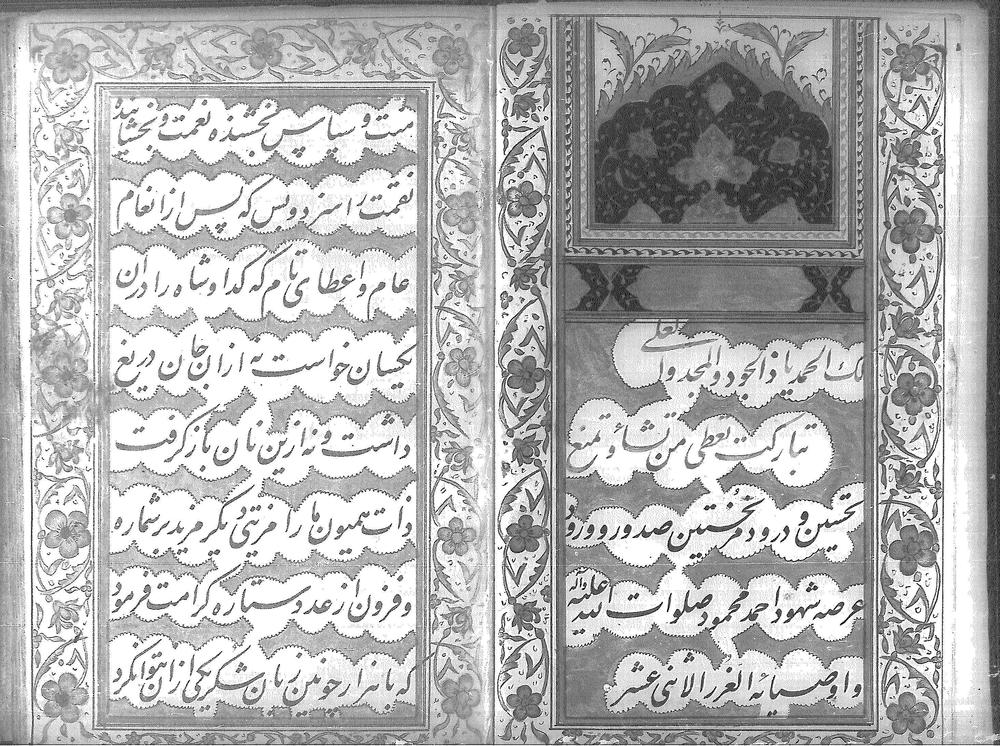 لک الحمد یا ذا الجود والمجد والعلی
تبارکت تعطی من تشاء و تمنع
تحسین و درود مر نخستین صدور و ورود
عرصه شهود احمد محمود صلوات الله علیه وآله
و اوصیائه الغرر الاثنی عشر
منت و سپاس بخشنده نعمت و بخشاینده
نقمت را سزد و بس که پس از انعام
عام و اعطای تام که گدا و شاه را در آن
یکسان خواست نه از آن جان دریغ
داشت و نه ازین نان بازگرفت
ذات همیون ما را مزیتی دیگر مزید بر شماره
و فزون از عدد ستاره کرامت فرمود
که با هزار چونین زبان شکر یکی از آن نتوان کرد